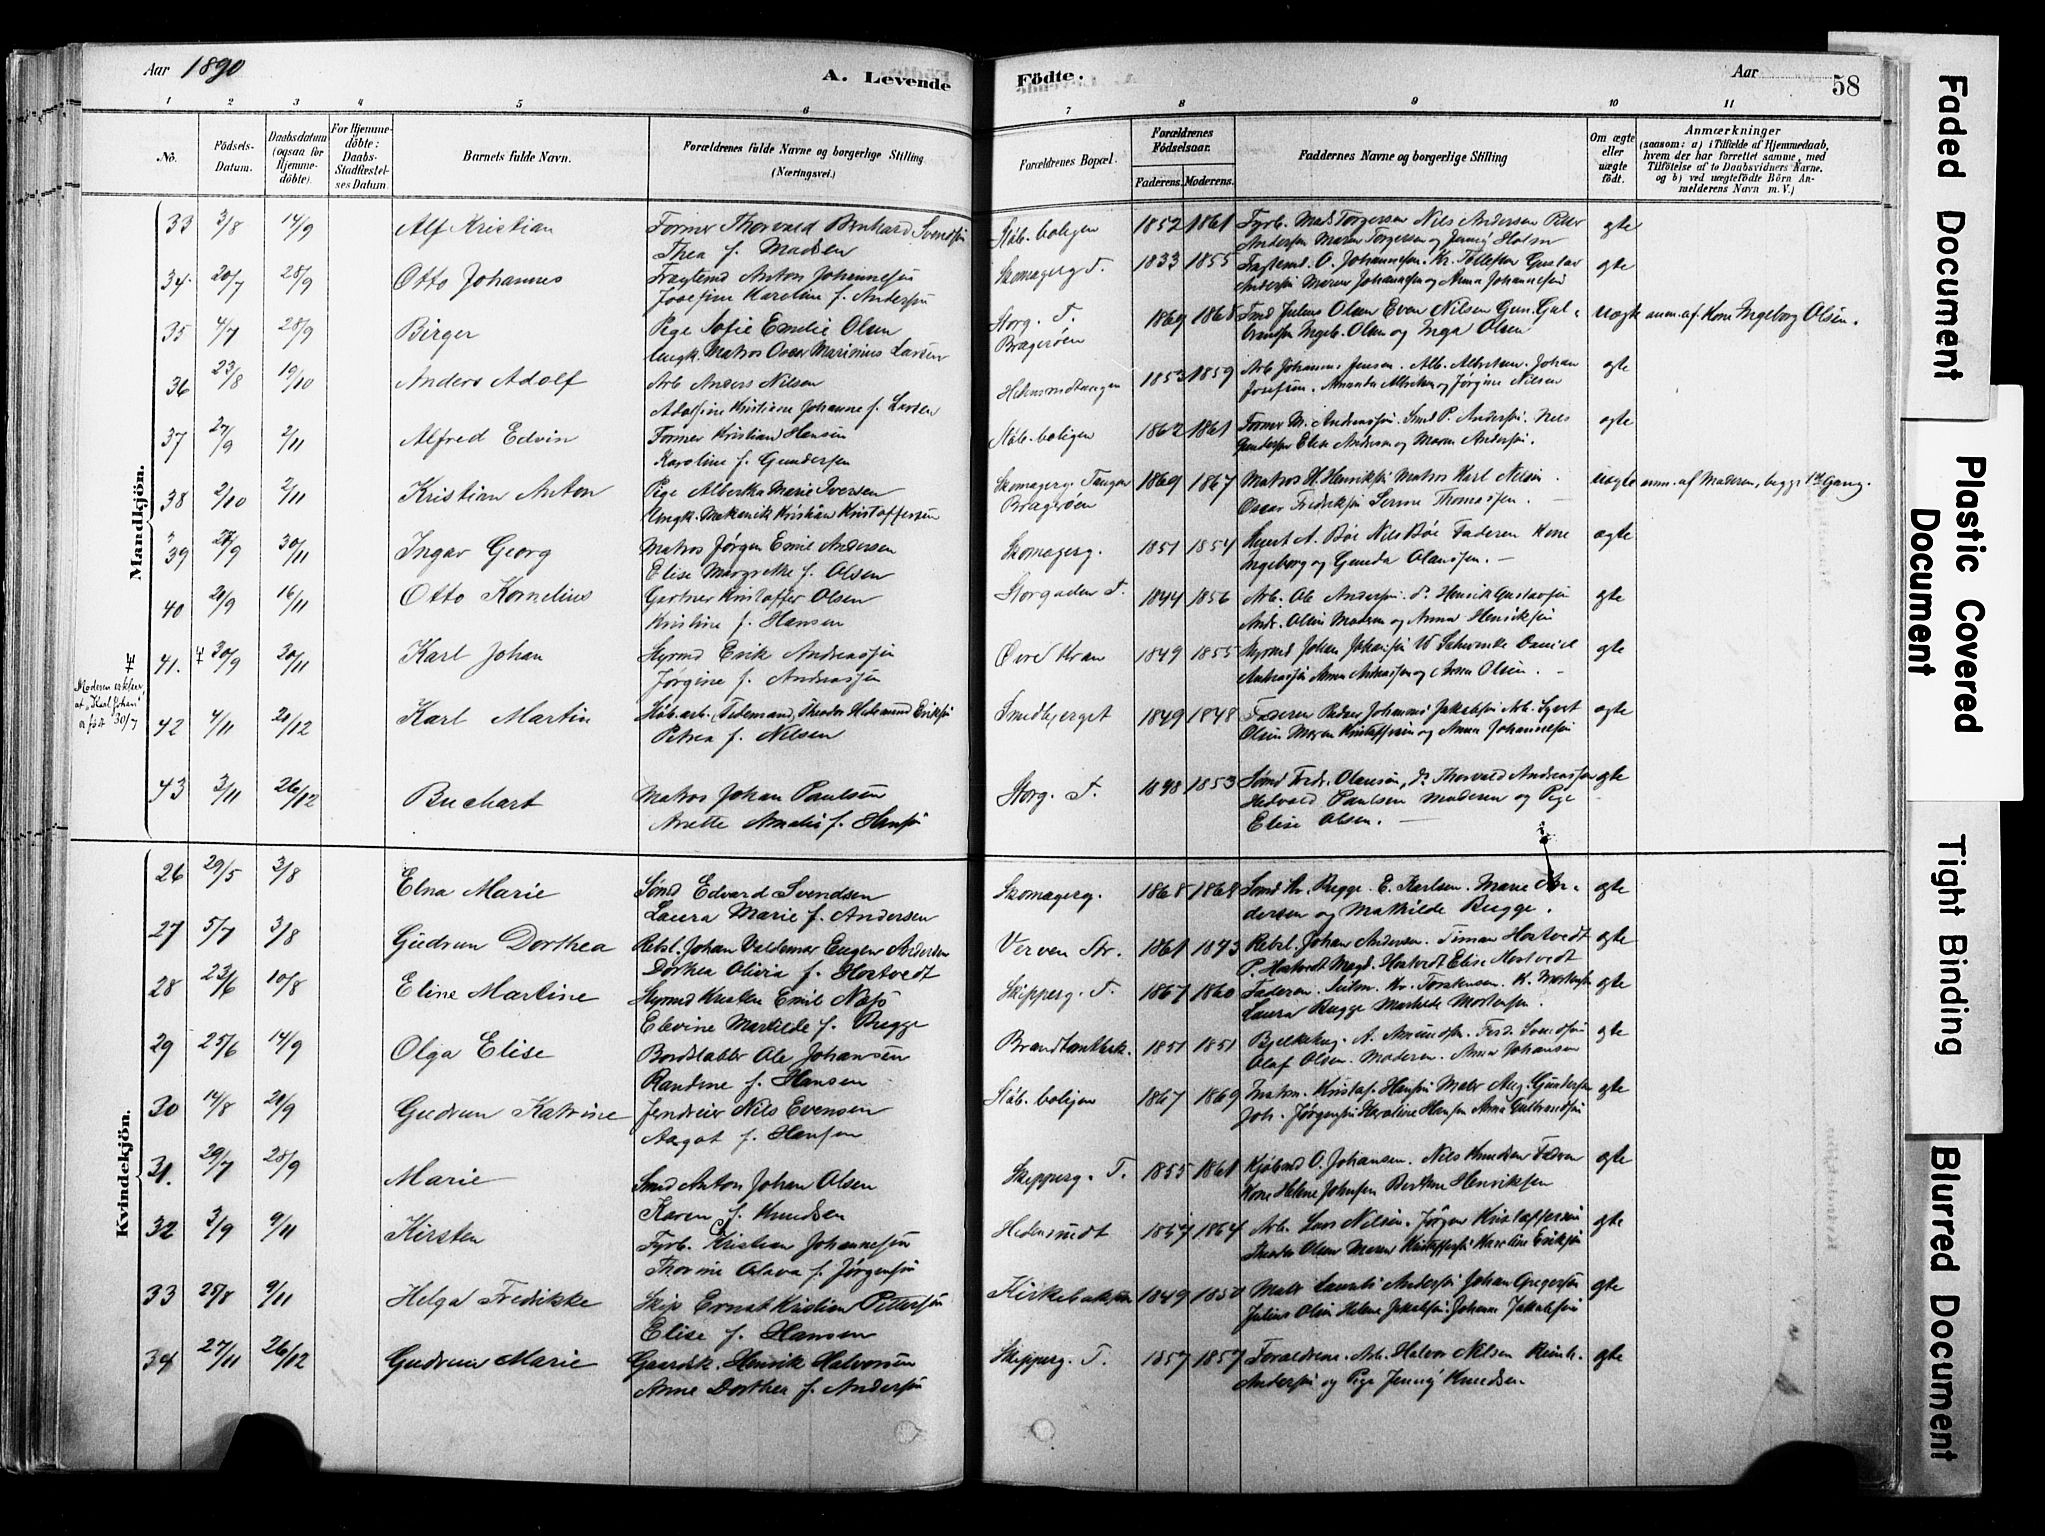 Aar 1890
A. Levende
Födte.
Aar
58
1 2 3 4 5 6 7 8 9 10 11
No.
Födsels-
Datum.
Daabsdatum
(ogsaa for
Hjemme-
döbte).
For Hjemme-
döbte:
Daabs-
Stadfæstel-
ses Datum.
Barnets fulde Navn.
Forældrenes fulde Navne og borgerlige Stilling
(Næringsvei.)
Forældrenes Bopæl.
Forældrenes
Födselsaar.
Faderens. Moderens.
Faddernes Navne og borgerlige Stilling
Om ægte
eller
uægte
födt.
Anmærkninger
(saasom: a) i Tilfælde af Hjemmedaab,
hvem der har forrettet samme, med
Tilföielse af to Daabsvidners Navne.
og b) ved uægtefödte Börn An-
melderens Navn m. V.)
Mandkjön.
33 3/8 14/9 Alf Kristian Former Thorvald Bernhard Svendsen Støb. boligen 1852 1861 Fyrb. Mads Torgersen Nils Andersen Peter ægte
Thea f. Madsen Andersen Maren Torgersen og Jenny Holm
34. 20/7 28/9 Otto Johannes Fragtemd Anton Johannesen Skomagerg T. 1833 1855 Fragtemd. O. Johannesen. Kr. Tollefsen Gustav ægte
Josefine Karoline f. Andersen Andersen Maren Johannesen og Anna Johannesen
35 4/7 28/9 Birger Pige Sofie Emelie Olsen Storg. T. 1869 1868 Smd Julius Olsen Even Nilsen Gun. Gul- uægte anm. af Kone Ingeborg Olsen.
Ungk. Matros Oscar Marinius Larsen Bragerøen Ingeb. Olsen og Inga Olsen
36 23/8 19/10 Anders Adolf Arb Anders Nilsen 1853 1859 Arb Johannes Jensen. Alb. Albretsen. Johan ægte
Adolfine Kristiane Johanne f. Larsen Josefsen. Amanda Albretsen og Jørgine Nilsen
37 27/9 2/11 Alfred Edvin Former Kristian Hansen Støb. boligen 1862 1861 Former M. Andreassen. Smd P. Andersen. Nils ægte
Karoline f. Gundersen Gundersen Elise Andersen og Maren Andersen.
38 2/10 2/11 Kristian Anton Pige Albertha Marie Iversen Skomagerg. Tangen 1869 1867 Matros H. Henriksen Matros Karl Nilsen uægte anm. af Moderen, begges 1st Gang.
Ungk. Mekanik Kristian Kristoffersen Bragerøen Oscar Fredriksen Serine Thomassen.
39 27/9 30/11 Ingar Georg Matros Jørgen Emil Andersen Skomagerg. 1851 1854 A. Bøe Nils Bøe Faderen Kone ægte
Elise Margrethe f. Olsen Ingeborg og Gunda Olaussen.
40 20/9 16/11 Otto Kornelius Gartner Kristoffer Olsen Storgaden T. 1844 1856 Arb. Ole Andersen. Do Henrik Gustavsen ægte
Kristine f. Hansen Andr. Olsen Moderen og Anna Henriksen
41. 30/9 20/11 Karl Johan Styrmd Erik Andreassen Øvre Kran 1849 1855 Styrmd Johan Johansen W Schwenke Daniel ægte
Jørgine f. Andreassen Andreassen Anna Andreassen og Anna Olsen.
Moderen erklærer,
at "Karl Johan"
er født 30/7
42 4/11 20/12 Karl Martin Støb.arb. (Fedemand) Theodor Hedemand Eriksen Smedbjerget 1849 1848 Faderen Johannes Jakobsen Arb. Syvert ægte
Petrea f. Nilsen Olsen Maren Kristoffersen og Anna Johannesen
43 3/11 26/12 Buchart Matros Johan Paulsen Storg. T. 1848 1853 Sømd Fredr. Olausen, Do Thorvald Andreassen ægte
Anette Amalie f. Hansen Hedvald Paulsen Moderen og Pige
Elise Olsen.
Kvindekjön.
26 29/5 3/8 Elna Marie Sømd Edvard Svendsen Skomagerg. 1868 1868 Smd Kr. Bugge. E. Karlsen. Marie An- ægte
Laura Marie f. Andersen dersen og Mathilde Bugge.
27 5/7 3/8 Gudrun Dorthea Rebsl. Johan Valdemar Eugen Andersen Verven Str. 1861 1873 Rebsl. Johan Andersen. Timan Hostvedt ægte
Dorthea Olivia f. Hostvedt P. Hostvedt Magd. Hostvedt Elise Hostvedt
28 23/6 10/8 Eline Martine Styrmd Kristen Emil Næsø Skipperg. T. 1867 1860 Faderen. Kr. Torstensen. K. Mortensen ægte
Elevine Matilde f. Bugge Laura Bugge Mathilde Mortensen.
29 25/6 14/9 Olga Elise Bordstabler Ole Johansen Brandtomtbk. 1851 1851 A. Amundsen. Ferd. Svendsen ægte
Randine f. Hansen Olaf Olsen. Moderen. Anna Johansen
30 14/8 21/9 Gudrun Katrine Jerndreier Nils Evensen Støb. boligen 1867 1869 Kristof. Hansen Matr Aug. Gundersen ægte
Aagot f. Hansen Joh. Jørgensen Karoline Hansen Anna Gulbrandsen
31. 29/7 28/9 Marie Smd Anton Johan Olsen Skipperg. T. 1855 1861 Kjøbmd O. Johansen. Nils Knudsen Faderen ægte
Karen f. Knudsen Kone Helene Johnsen Berthine Henriksen
32 3/9 9/11 Kirsten Fyrb. Kristian Johannesen Hedensrudt 1857 1864 Arb. Lars Nilsen. Jørgen Kristoffersen ægte
Thorine Olava f. Jørgensen Theodor Olsen Maren Kristoffersen Karoline Eriksen
33 25/8 9/11 Helga Fredrikke Skip Ernst Kristian Pettersen Kirkebakken 1849 1850 Matr Laurits Andersen Johan Gregersen ægte
Elise f. Hansen Julius Olsen Helene Jakobsen. Johanne Jakobsen
34 27/11 26/12 Gudrun Marie Gaardsk. Henrik Halvorsen Skipperg. T. 1857 1857 Forældrene. Arb. Halvor Nilsen Reinh. ægte
Anne Dorthea f. Andersen Andersen og Pige Jenny Knudsen
Faded Document
Plastic Covered
Document
Tight Binding
Blurred Document